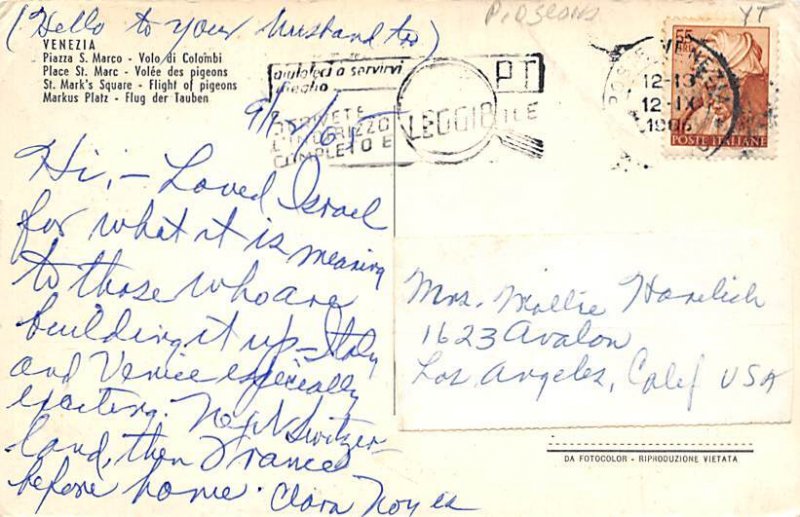 (Hello to your husband too)
VENEZIA
Piazza S. Marco - Volo di Colombi
Place St. Marc - Volée des pigeons
St. Mark's Square - Flight of pigeons
Markus Platz - Flug der Tauben
PIGEONS
YT
aiutateci a servirvi
meglio
SCRIVETE
L'INDIRIZZO
COMPLETO E
LEGGIBILE
PT
VENEZIA
12-IX
55
POSTE ITALIANE
Hi, - Loved Israel
for what it is meaning
to those who are
building it up - Italy
and Venice especially
exciting. Next Switzer-
land, then France
before home. Clara Noyes
Mrs. Mollie
1623 Avalon
Los Angeles, Calif USA
DA FOTOCOLOR - RIPRODUZIONE VIETATA